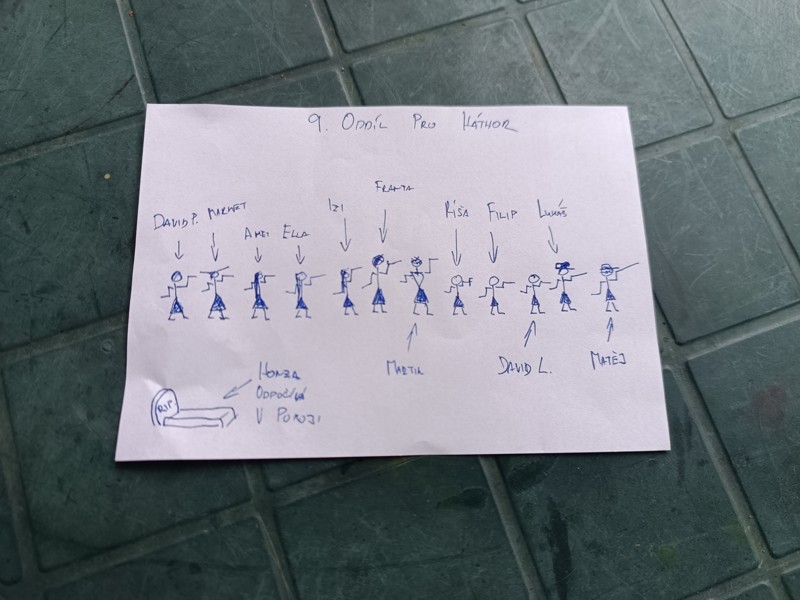 9. ODDÍL PRO HÁTHOR
FRANTA
IZI
DAVID P. MARKET AMEI ELLA RÍŠA FILIP LUKÁŠ
MARTIN DAVID L. MATĚJ
HONZA
ODPOČÍVÁ
V POKOJI
RIP